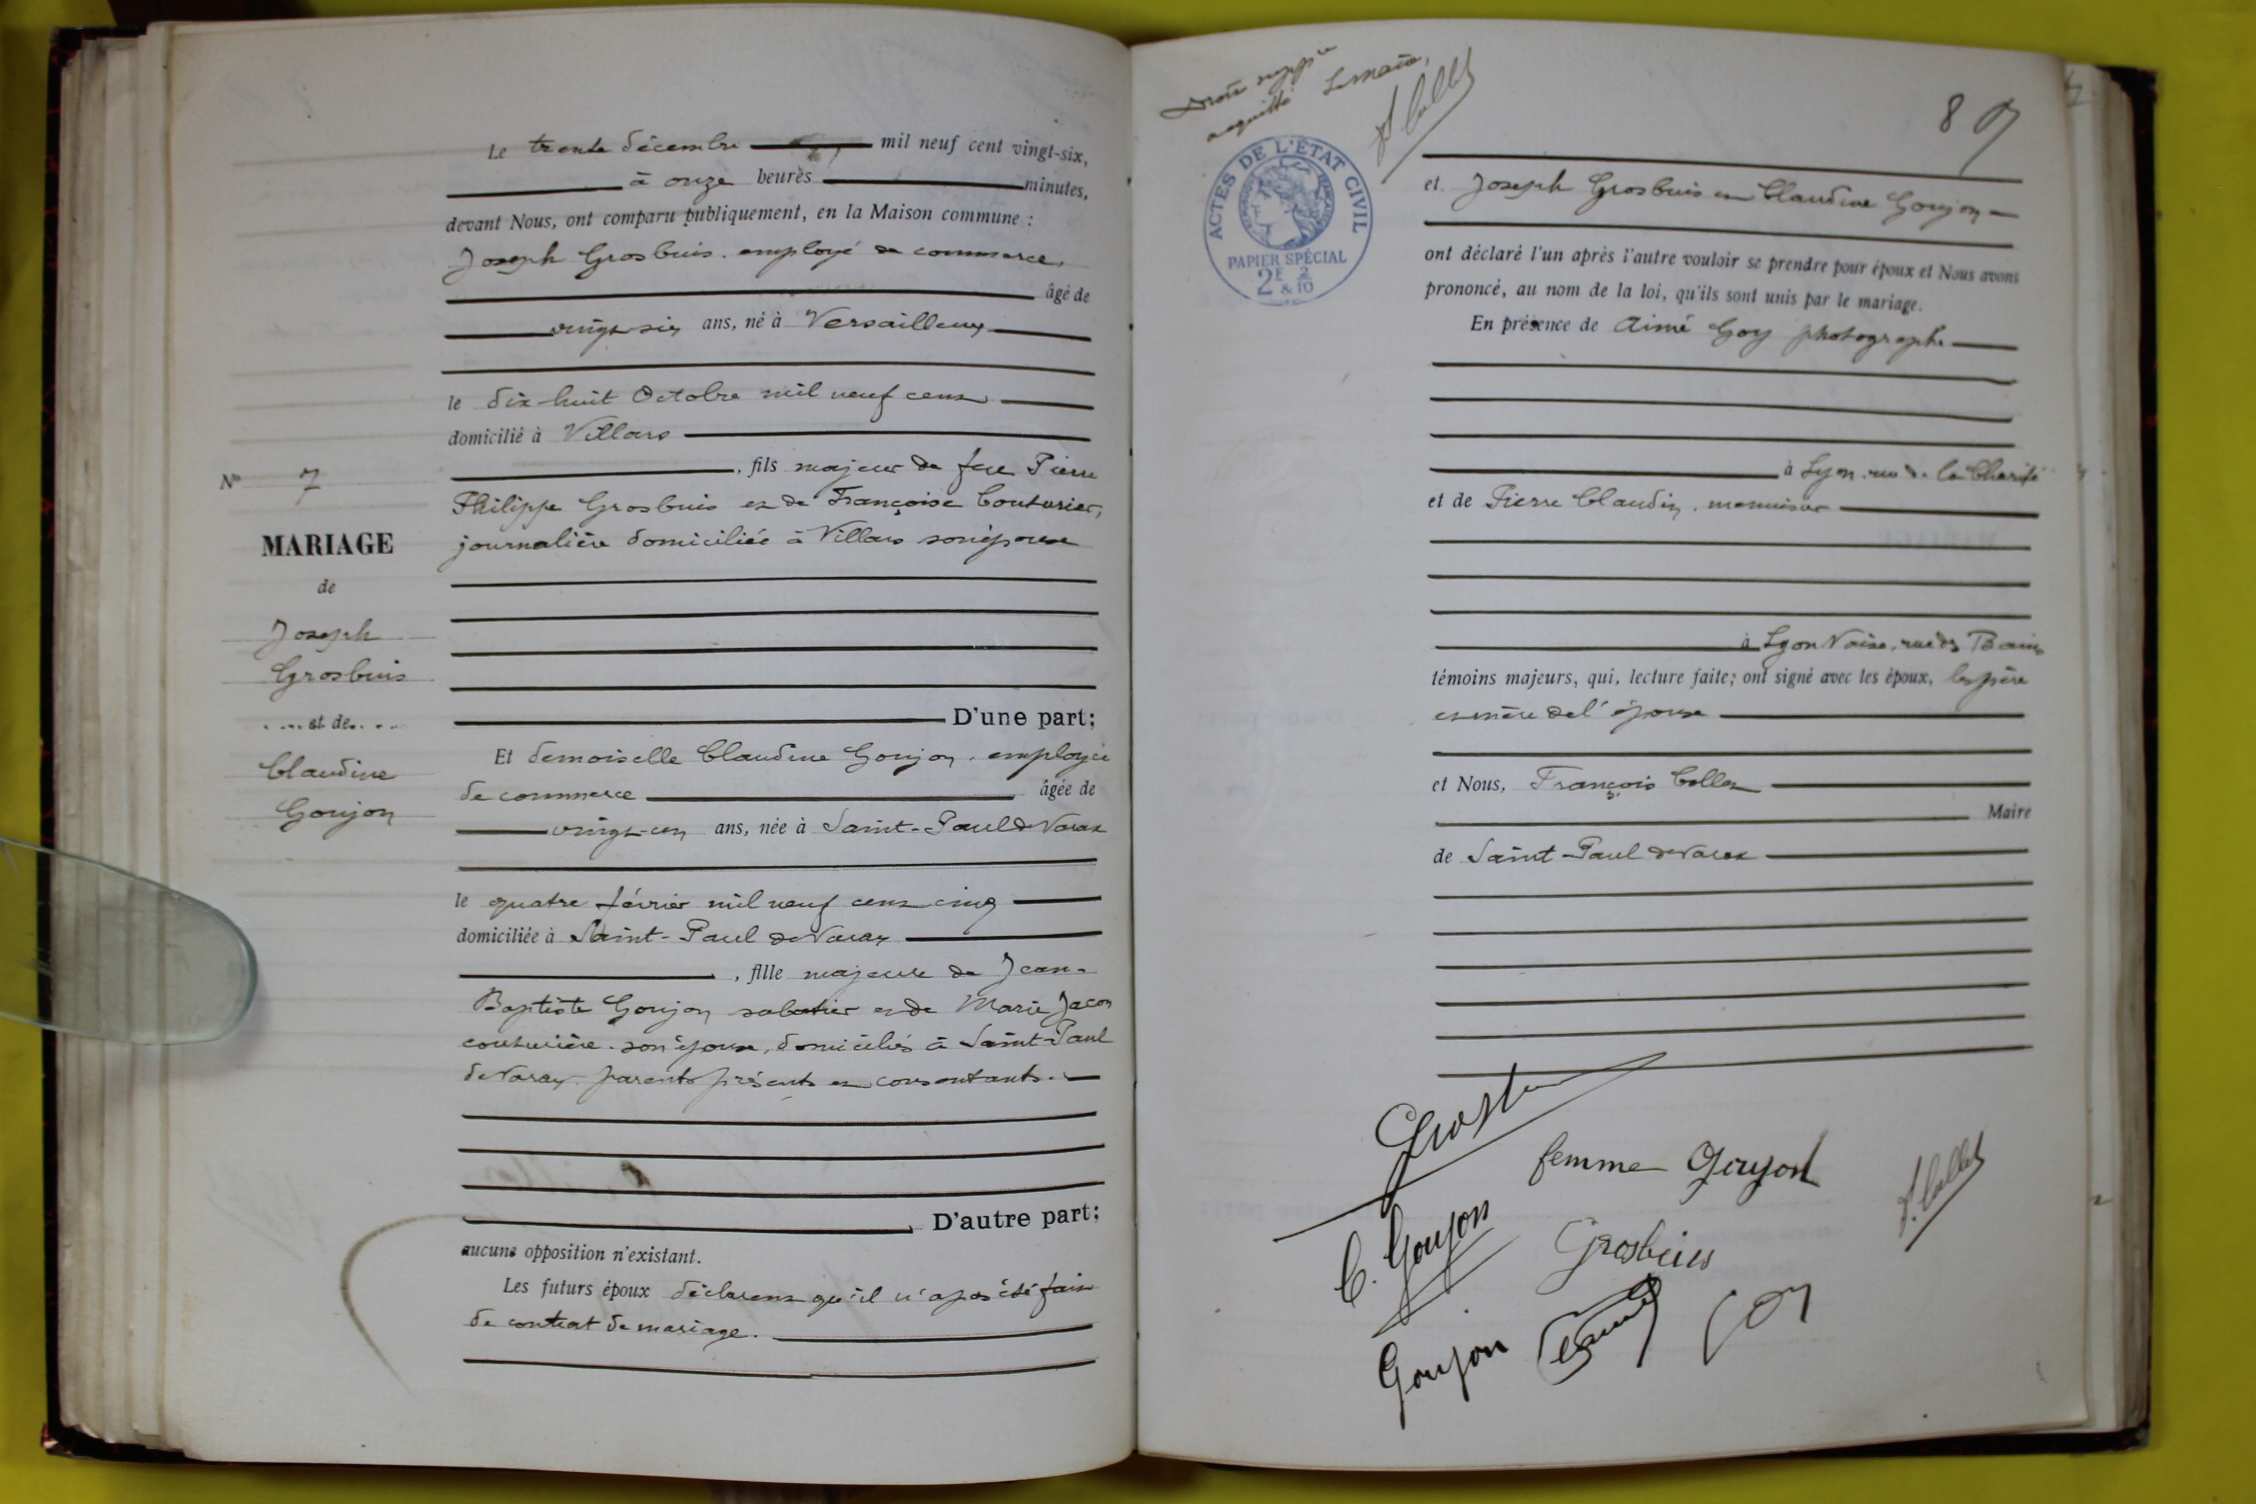 Nº 7
MARIAGE
de
Joseph
Grosbuis
et de
Claudine
Goujon
Le trente décembre mil neuf cent vingt-six,
à onze heures minutes,
devant Nous, ont comparu publiquement, en la Maison commune :
Joseph Grosbuis. employé de commerce,
âgé de
vingt-six ans, né à Versailleux
le dix-huit Octobre mil neuf cent
domicilié à Villars
, fils majeur de feu Pierre
Philippe Grosbuis et de Françoise Couturier,
journalière domiciliée à Villars son épouse
D'une part;
Et demoiselle Claudine Goujon, employée
de commerce âgée de
vingt-un ans, née à Saint-Paul de Varax
le quatre février mil neuf cent cinq
domiciliée à Saint-Paul de Varax
, fille majeure de Jean-
Baptiste Goujon sabotier et de Marie Jacon
couturière. son épouse, domiciliés à Saint-Paul
de Varax. parents présents et consentants.
D'autre part;
aucune opposition n'existant.
Les futurs époux déclarent qu'il n'a pas été fait
de contrat de mariage.
acquitté Le maire,
F. Collet
8
ACTES DE L'ÉTAT CIVIL
PAPIER SPÉCIAL
2F & 2/10
et Joseph Grosbuis et Claudine Goujon
ont déclaré l'un après l'autre vouloir se prendre pour époux et Nous avons
prononcé, au nom de la loi, qu'ils sont unis par le mariage.
En présence de Aimé Goy photographe
à Lyon. rue de la Charité
et de Pierre Claudin, menuisier
à Lyon Vaise, rue des Bains
témoins majeurs, qui, lecture faite; ont signé avec les époux, les père
et mère de l'épouse
et Nous, François Collet
Maire
de Saint-Paul de Varax
femme Goujon
F. Collet
C. Goujon
Grosbuis
Goujon
Goy